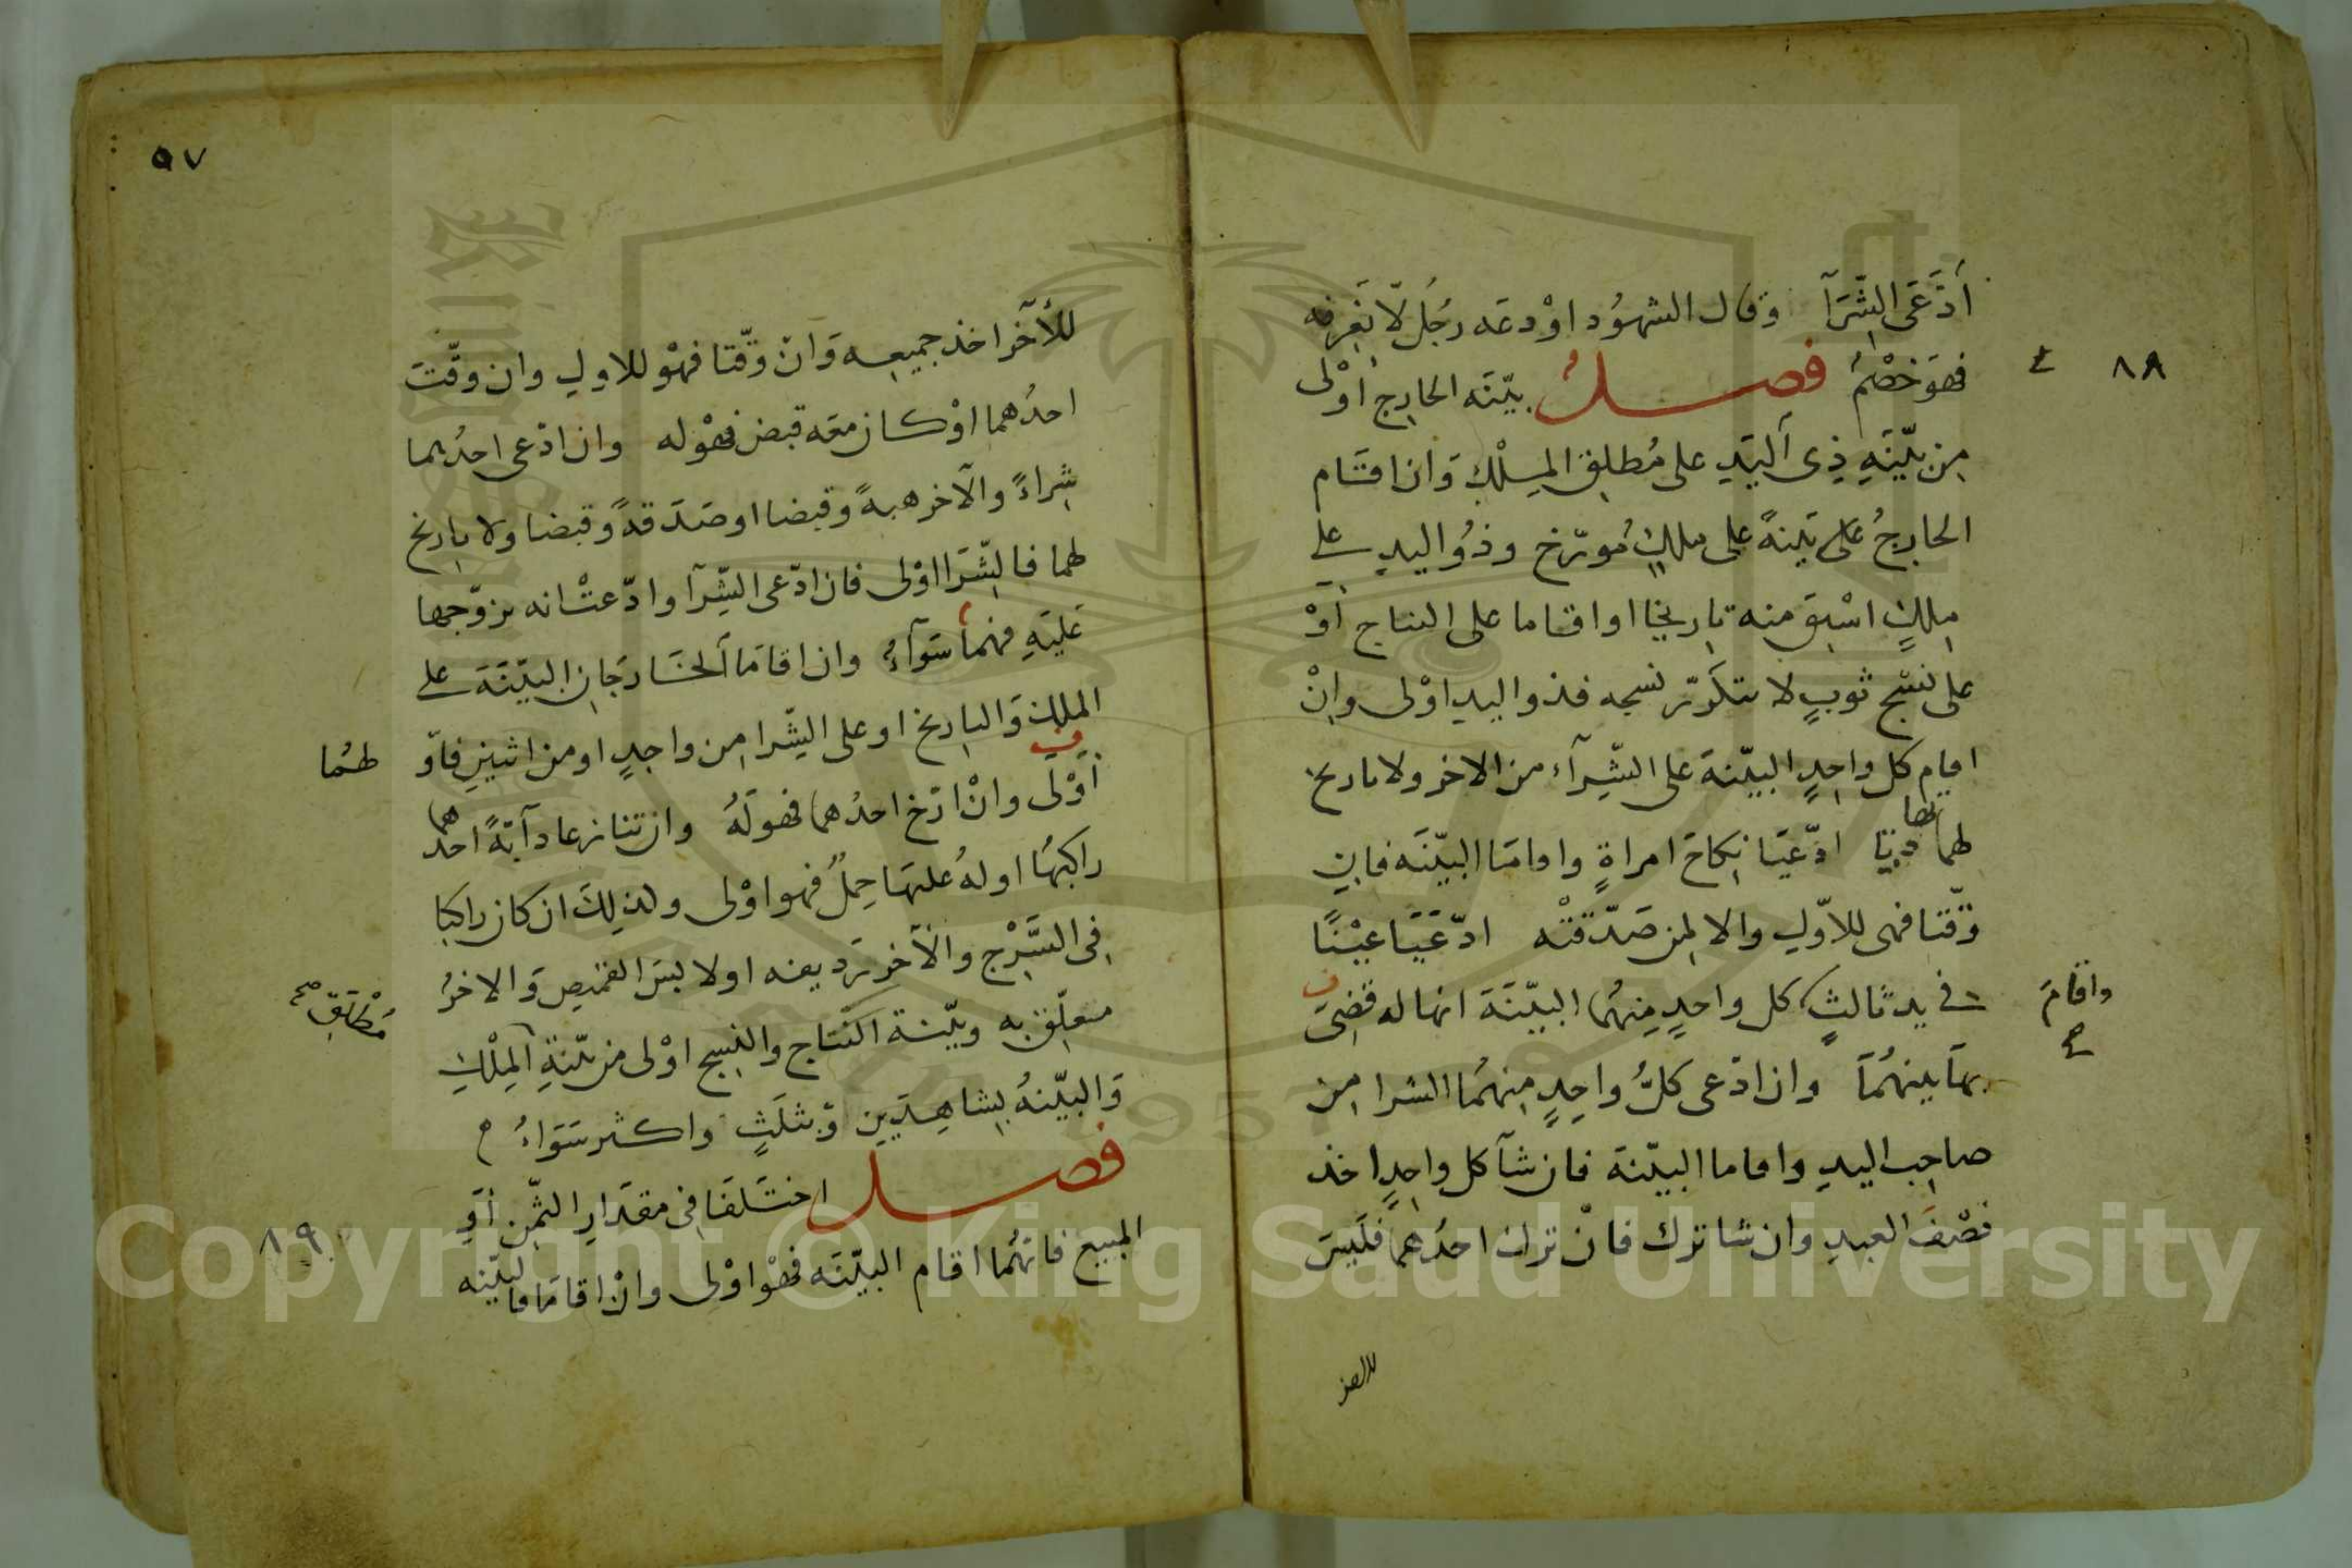 ادّعى الشّرآ وقال الشهود اودعه رجل لا نعرفه
فهو خصم فصل بيّنة الخارج اولى
٨٨
من بيّنة ذي اليد على مطلق الملك وان اقام
الخارج على بينة على ملك مورّخ وذو اليد على
ملك اسبق منه تاريخا او اقاما على النتاج او
على نسج ثوب لا يتكرّر نسجه فذو اليد اولى وان
اقام كل واحد البيّنة على الشّرآء من الاخر ولا تاريخ
لهما تهاترتا ادّعيا نكاح امراة واقاما البيّنة فان
وقّتا فهى للاوّل والا لمن صدّقته ادّعيا عينا
في يد ثالث كل واحد منهما البيّنة انها له قضى
واقام صح
بها بينهما وان ادّعى كلّ واحد منهما الشرا من
صاحب اليد واقاما البيّنة فان شآ كل واحد اخذ
نصف العبد وان شا ترك فان ترك احدهما فليس
للاخر
٥٧
للآخر اخذ جميعه وان وقّتا فهو للاول وان وقّت
احدهما او كان معه قبض فهو له وان ادّعى احدهما
شراءً والآخر هبةً وقبضا او صدقةً وقبضا ولا تاريخ
لهما فالشّرا اولى فان ادّعى الشّرآ وادّعت انه تزوّجها
عليه فهما سوآء وان اقاما الخارجان البيّنة على
الملك والتاريخ او على الشّرا من واحد او من اثنين فاوّ
لهما
اولى وان ارّخ احدهما فهو له وان تنازعا دآبّةً احدهما
راكبها او له عليها حمل فهو اولى وكذلك ان كان راكبا
في السّرج والآخر رديفه او لابس القميص والاخر
متعلّق به وبيّنة النتاج والنسج اولى من بيّنة الملك
مطلق صح
والبيّنة بشاهدين وثلث واكثر سواء
فصل اختلفا في مقدار الثمن او
٨٩
المبيع فايّهما اقام البيّنة فهو اولى وان اقاما فالبيّنة
Copyright © King Saud University
1957